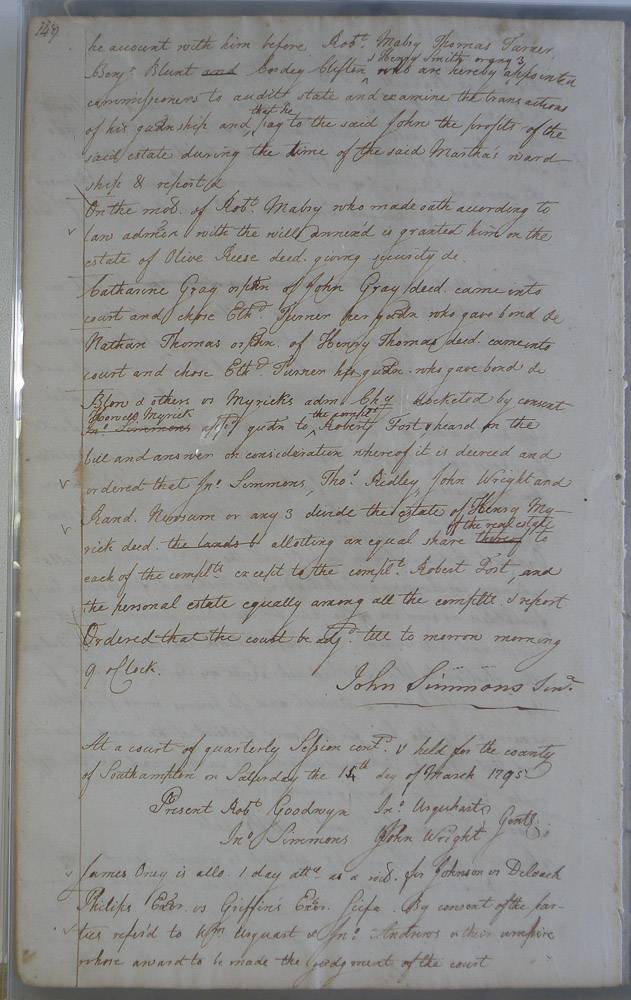 149
he account with him before Robt. Mabry Thomas Turner
& Henry Smith or any 3
Benj. Blunt and Cordey Clifton who are hereby appointed
commissioners to audit state and examine the transactions
that he
of his gudnship and pay to the said John the profits of the
said estate during the time of the said Martha's ward
ship & report &
On the mo. of Robt. Mabry who made oath according to
law admon with the will annex'd is granted him on the
estate of Olive Reese decd. giving security &c.
Catharine Gray orphn of John Gray decd. came into
court and chose Ethd. Turner her gudn who gave bond &c
Nathan Thomas orphn. of Henry Thomas decd. came into
court and chose Ethd. Turner his gudn. who gave bond &c
Blow & others vs Myrick's adm Chy docketed by consent
Howell Myrick the complt.
Jno. Simmons appd gudn to Robert Fort & heard on the
bill and answer on consideration whereof it is decreed and
ordered that Jno. Simmons, Thos. Ridley, John Wright and
Rand. Newsum or any 3 divide the estate of Henry My-
of the real estate
rick decd. the lands & allotting an equal share thereof to
each of the complts. except to the complt. Robert Fort, and
the personal estate equally among all the complts. & report
Ordered that the court be adjd. till to morrow morning
9 oClock.
John Simmons Senr.
At a court of quarterly Session contd. & held for the county
of Southampton on Saturday the 14th day of March 1795
Present Robt. Goodwyn Jno. Urquhart Gentn.
Jno. Simmons John Wright
James Oney is allo. 1 day atta. as a wits. for Johnson vs Deloach
Philips Exor. vs Griffin's Exor. Scifa. By consent of the par-
ties refer'd to Wm. Urquart & Jno. Andrews & their umpire
whose award to be made the judgment of the court